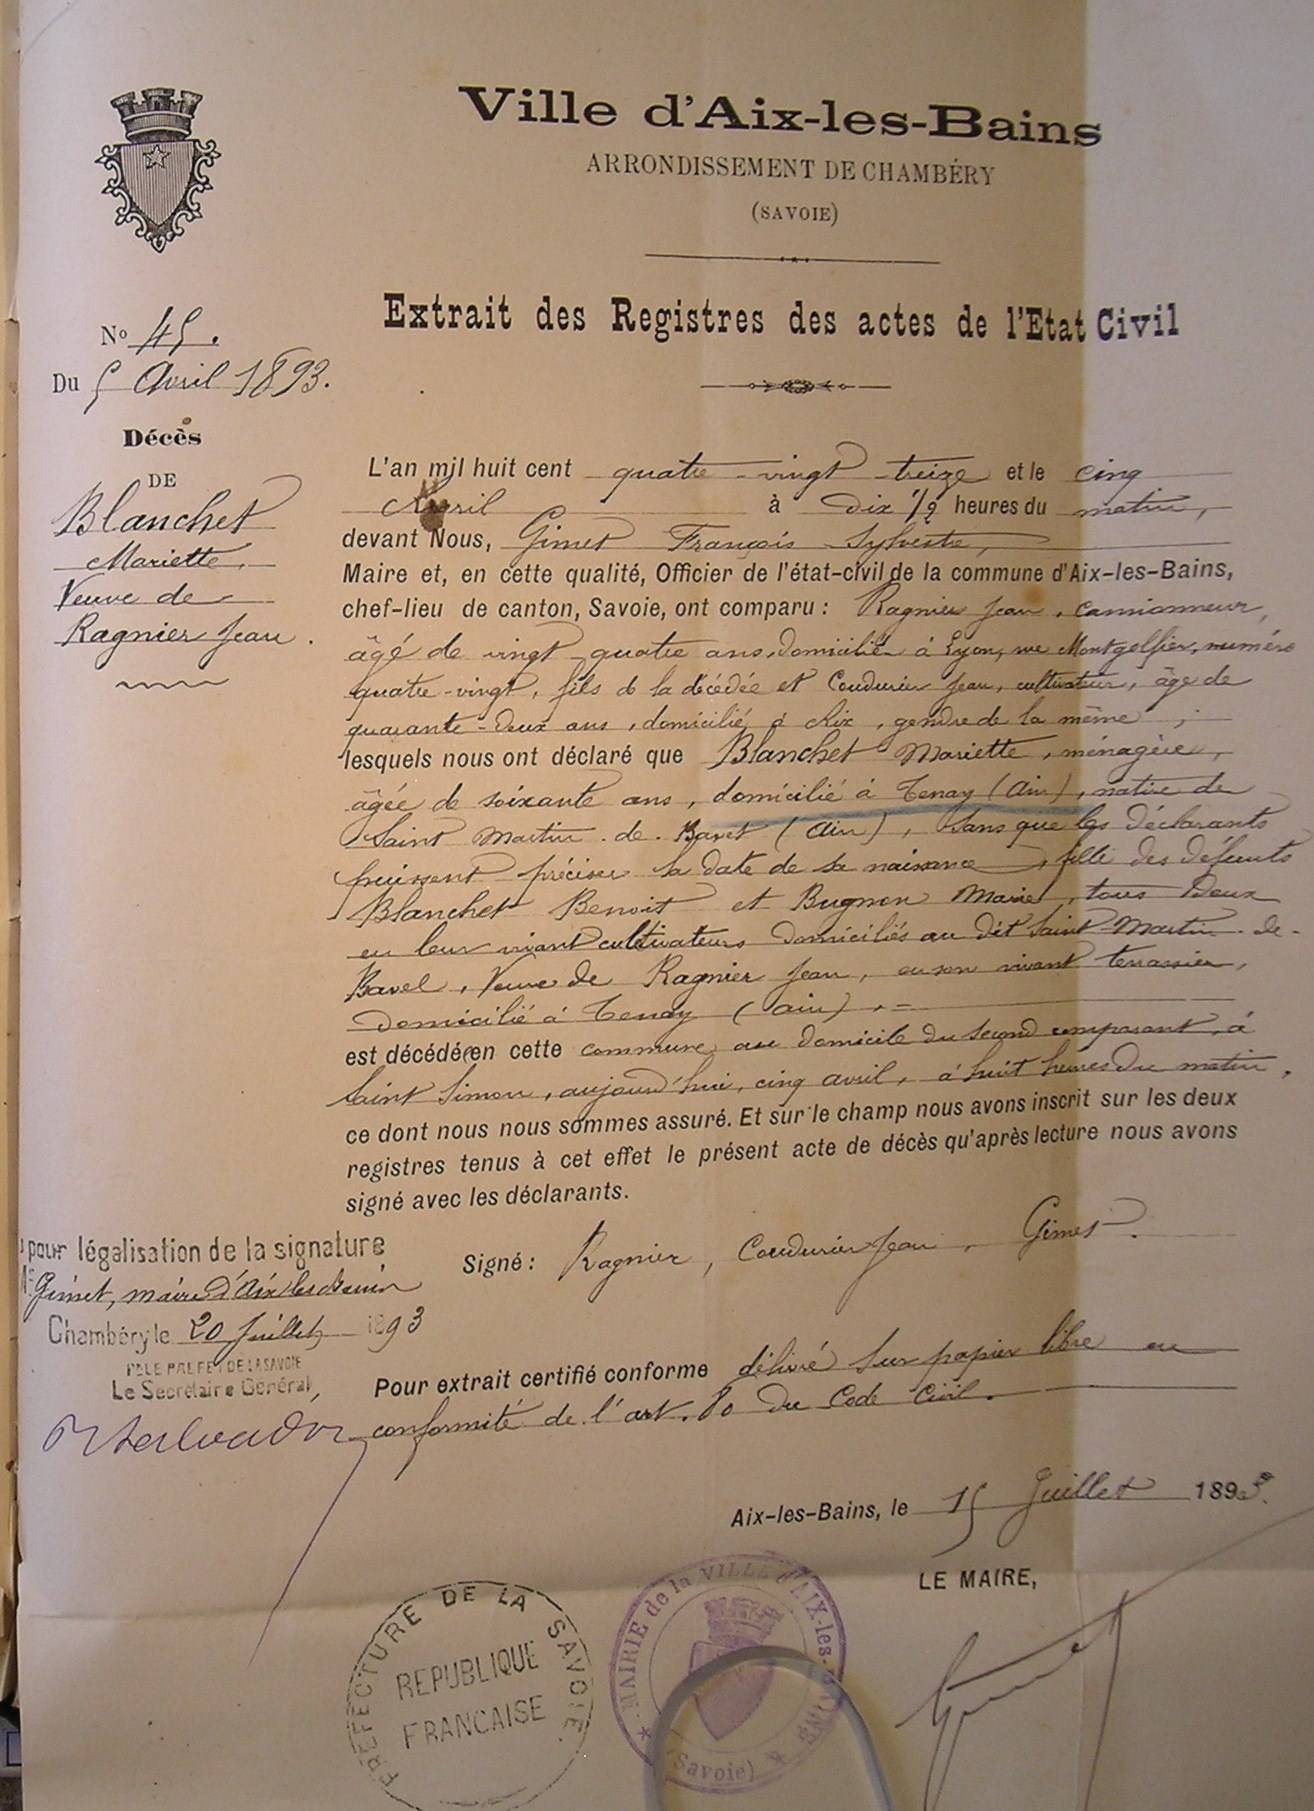 Ville d'Aix-les-Bains
ARRONDISSEMENT DE CHAMBÉRY
(SAVOIE)
Extrait des Registres des actes de l'Etat Civil
No 45.
Du 5 Avril 1893.
Décès
DE
Blanchet
Mariette,
Veuve de
Ragnier Jean.
L'an mil huit cent quatre-vingt-treize et le cinq
Avril à dix 1/2 heures du matin,
devant Nous, Gimet François Sylvestre,
Maire et, en cette qualité, Officier de l'état-civil de la commune d'Aix-les-Bains,
chef-lieu de canton, Savoie, ont comparu : Ragnier Jean, camionneur,
âgé de vingt-quatre ans, domicilié à Lyon, rue Montgolfier, numéro
quatre-vingt, fils de la décédée et Coudurier Jean, cultivateur, âgé de
quarante-deux ans, domicilié à Aix, gendre de la même ;
lesquels nous ont déclaré que Blanchet Mariette, ménagère,
âgée de soixante ans, domicilié à Tenay (Ain), native de
Saint Martin-de-Bavel (Ain), sans que les déclarants
puissent préciser la date de sa naissance, fille des défunts
Blanchet Benoit et Bugnon Marie, tous deux
en leur vivant cultivateurs domiciliés au dit Saint-Martin-de-
Bavel, Veuve de Ragnier Jean, en son vivant terrassier,
domicilié à Tenay (Ain). =
est décédée en cette commune, au domicile du second comparant, à
Saint Simon, aujourd'hui, cinq avril, à huit heures du matin,
ce dont nous nous sommes assuré. Et sur le champ nous avons inscrit sur les deux
registres tenus à cet effet le présent acte de décès qu'après lecture nous avons
signé avec les déclarants.
Signé : Ragnier, Coudurier Jean, Gimet.
pour légalisation de la signature
Mr Gimet, maire d'Aix les Bains
Chambéry le 20 Juillet 1893
P. LE PRÉFET DE LA SAVOIE
Le Secrétaire Général,
Pour extrait certifié conforme délivré sur papier libre en
conformité de l'art. 80 du Code Civil.
Aix-les-Bains, le 15 Juillet 1893.
LE MAIRE,
Gimet
PREFECTURE DE LA SAVOIE.
REPUBLIQUE
FRANCAISE
MAIRIE de la VILLE d'AIX-les-BAINS
(Savoie)